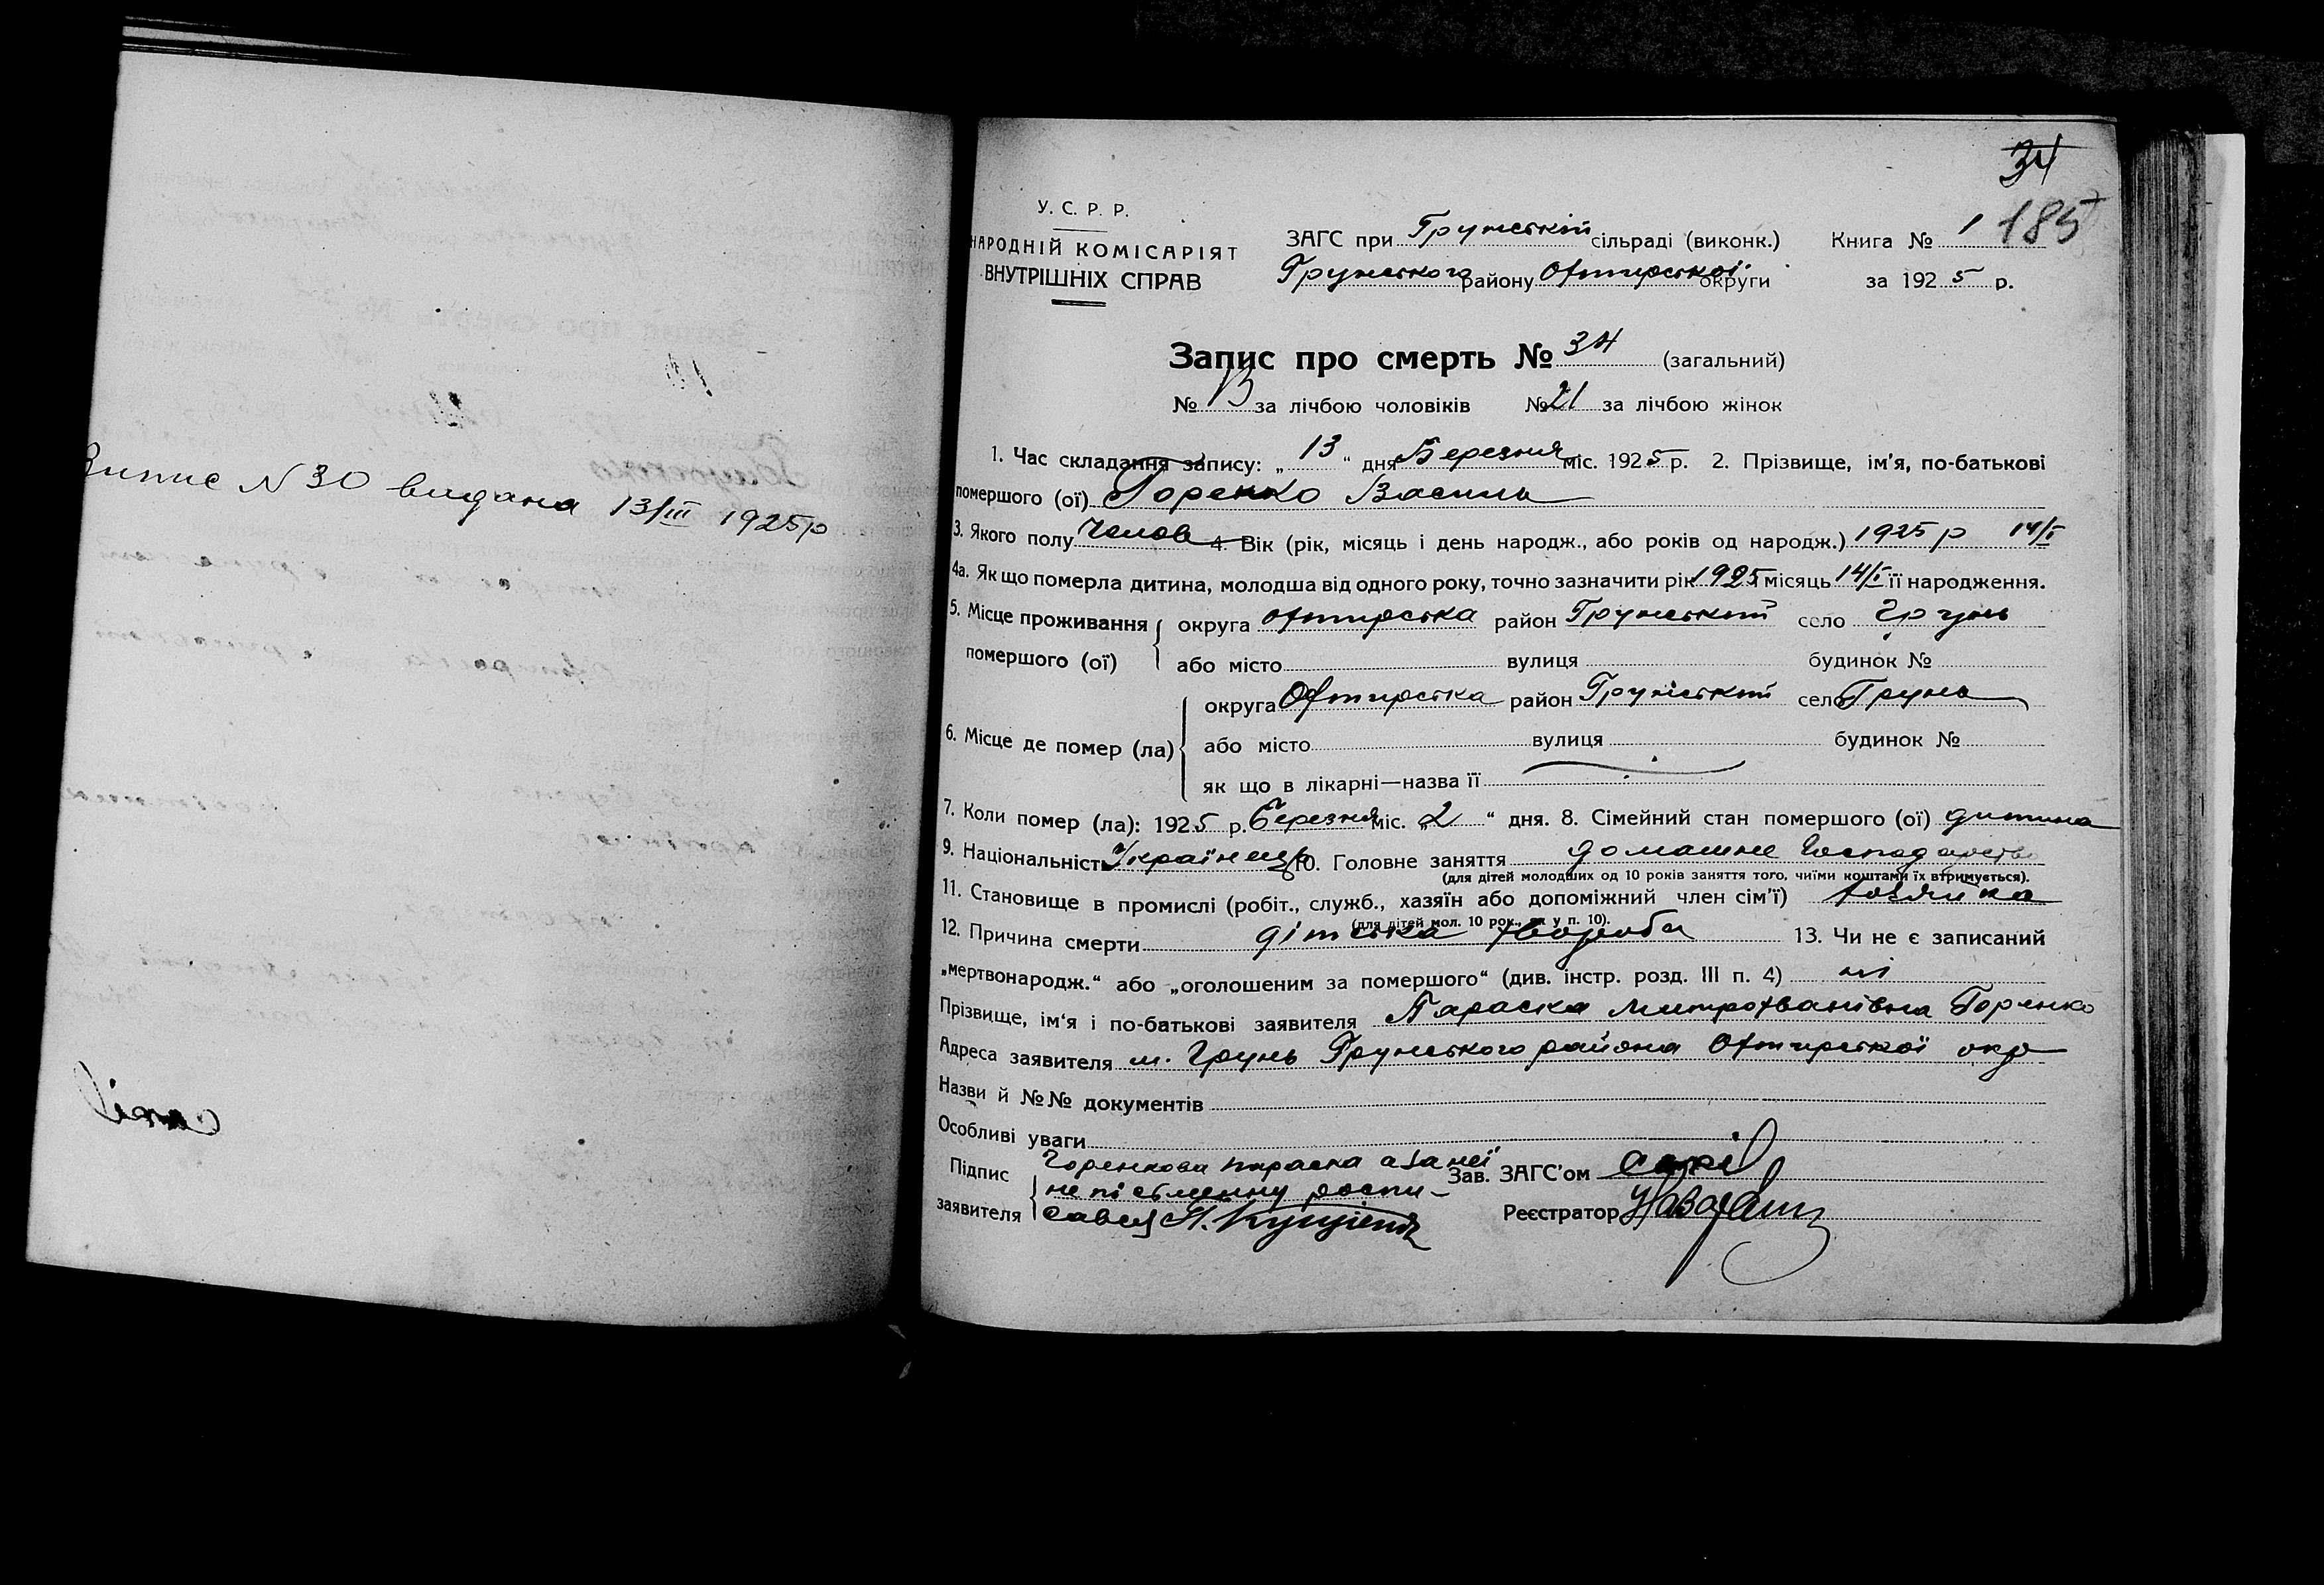 Випис N 30 видана 13/III 1925р
34
185
У. С. Р. Р.
НАРОДНІЙ КОМІСАРІЯТ
ВНУТРІШНІХ СПРАВ
ЗАГС при Грунській сільраді (виконк.) Книга № 1
Грунського району Охтирської округи за 1925 р.
Запис про смерть № 34 (загальний)
№ 13 за лічбою чоловіків № 21 за лічбою жінок
1. Час складання запису: „ 13 “ дня Березня міс. 1925 р. 2. Прізвище, ім'я, по-батькові
помершого (ої) Горенко Василь
3. Якого полу Чолов 4. Вік (рік, місяць і день народж., або років од народж.) 1925 р 14/I
4а. Як що померла дитина, молодша від одного року, точно зазначити рік 1925 місяць 14/I її народження.
5. Місце проживання помершого (ої) округа Охтирська район Грунський село Грунь
або місто вулиця будинок №
6. Місце де помер (ла) округа Охтирська район Грунський село Грунь
або місто вулиця будинок №
як що в лікарні—назва її
7. Коли помер (ла): 1925 р. Березня міс. „ 2 “ дня. 8. Сімейний стан помершого (ої) дитина
9. Національність Українець 10. Головне заняття домашне господарство
(для дітей молодших од 10 років заняття того, чиїми коштами їх втримується).
11. Становище в промислі (робіт., служб., хазяїн або допоміжний член сім'ї) хозяйка
(для дітей мол. 10 рок., як у п. 10).
12. Причина смерти дітська хвороба 13. Чи не є записаний
„мертвонародж.“ або „оголошеним за помершого“ (див. інстр. розд. III п. 4) ні
Прізвище, ім'я і по-батькові заявителя Параска Митрофванівна Горенко
Адреса заявителя м. Грунь Грунського района Охтирської окр
Назви й №№ документів
Особливі уваги
Підпис заявителя Горенкова параска а за неї
не пісьменну роспи-
савсь А.
Зав. ЗАГС'ом
Реєстратор